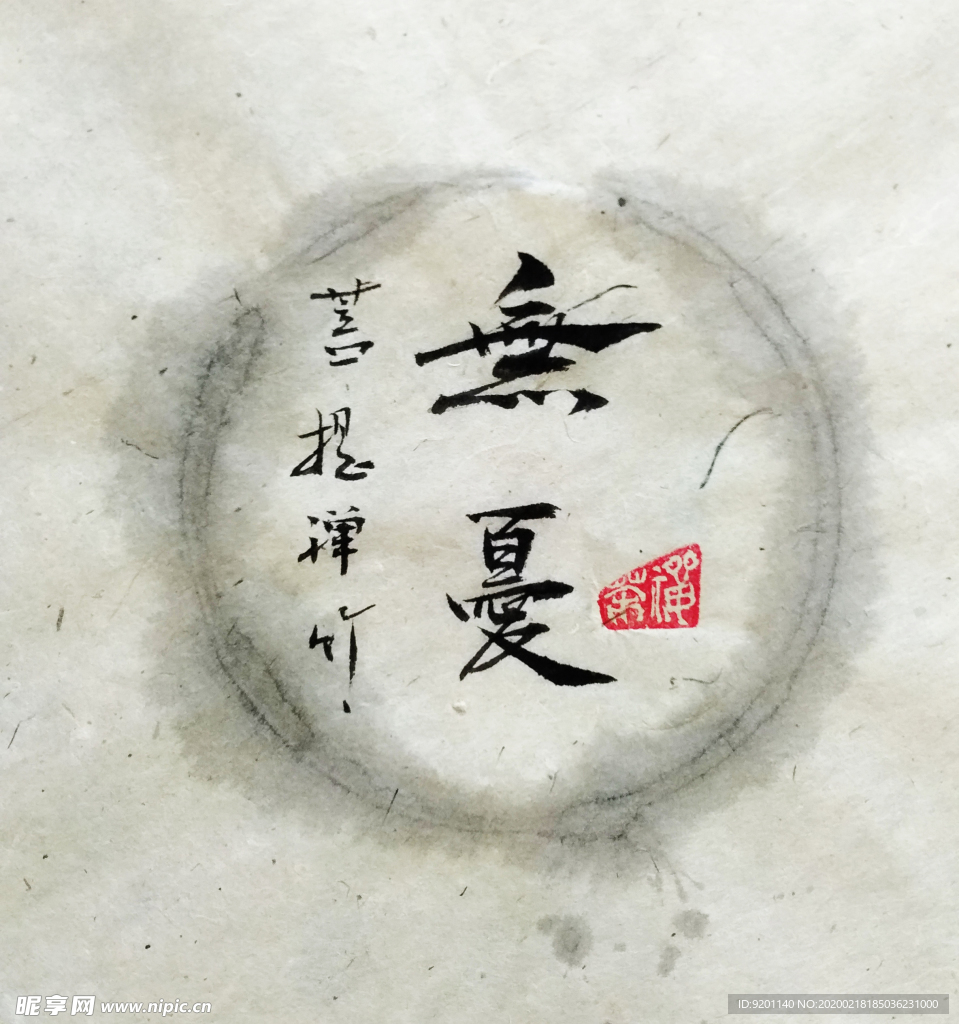 無憂
菩提禪竹
昵享网 www.nipic.cn
ID:9201140 NO:20200218185036231000